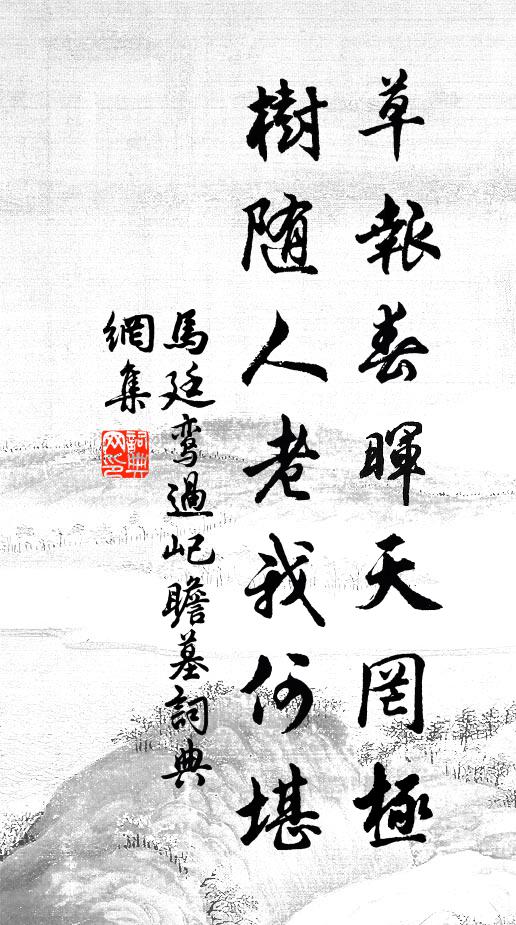 草報春暉天罔極
樹随人老我何堪
馬廷鸾過屺瞻墓詞典
網集
詞典